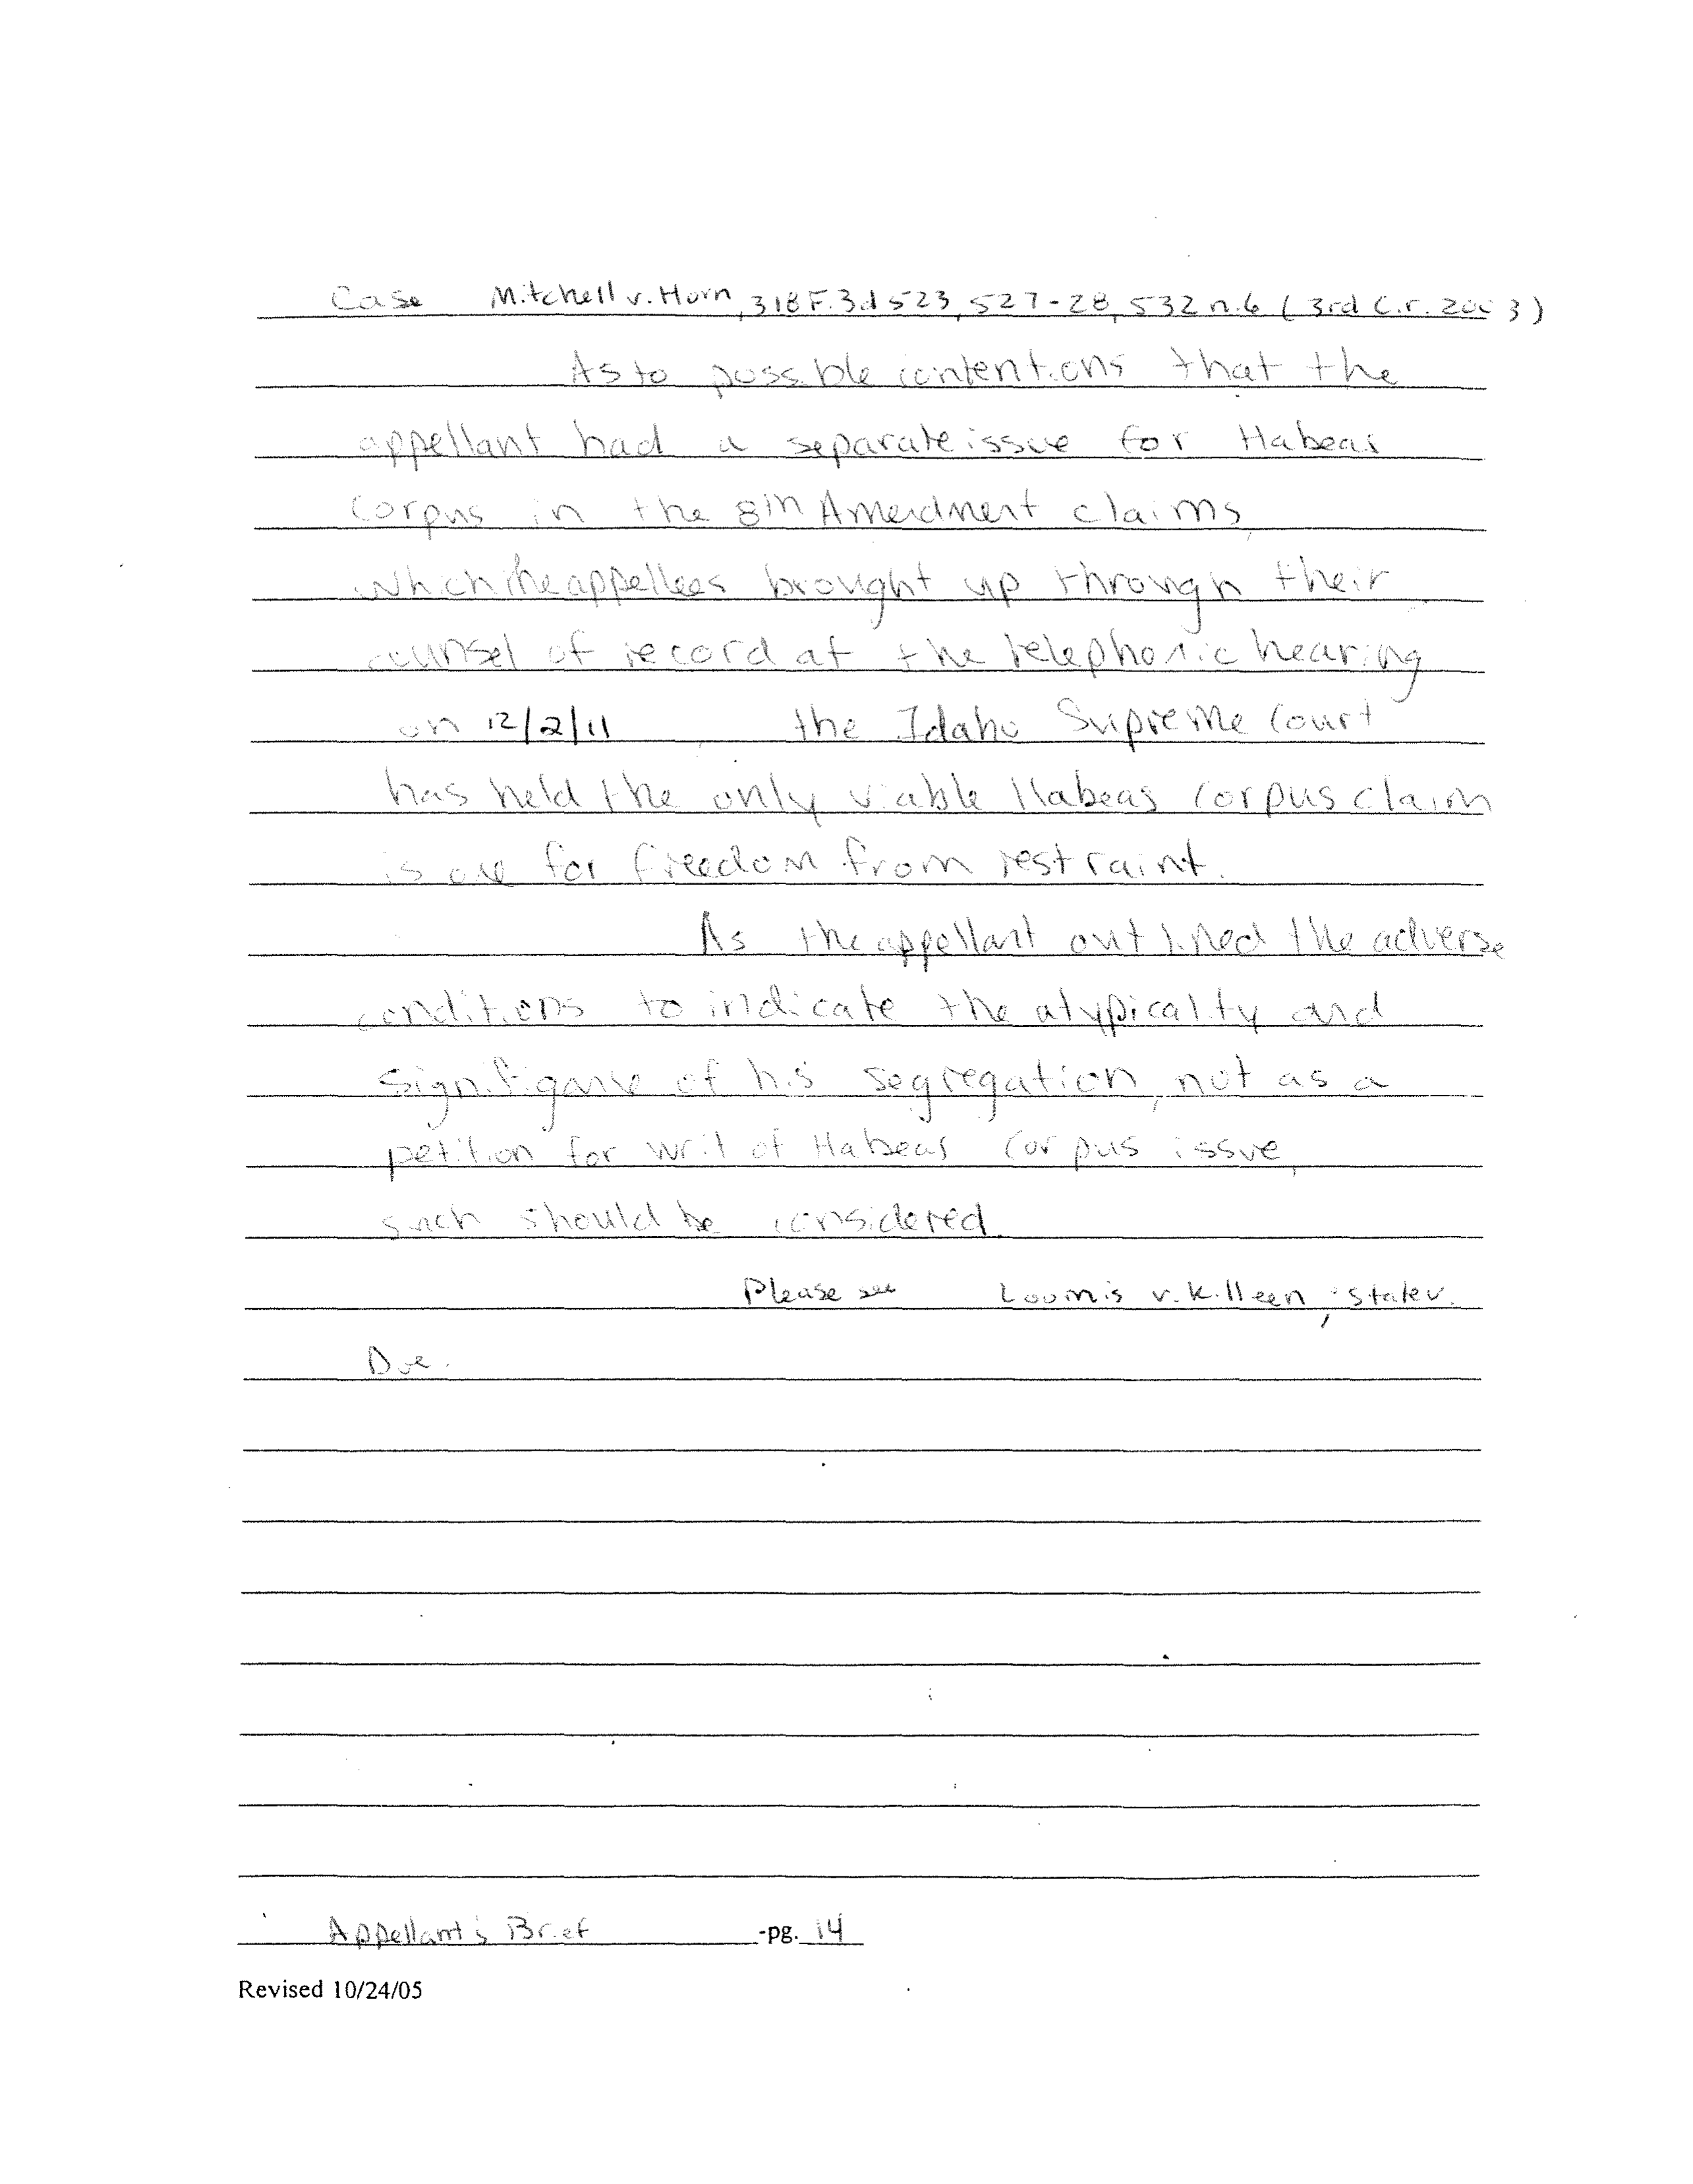 Case Mitchell v. Horn, 318 F.3d 523, 527-28, 532 n.6 (3rd Cir. 2003)
As to possible contentions that the
appellant had a separate issue for Habeas
Corpus in the 8th Amendment claims,
which the appellees brought up through their
counsel of record at the telephonic hearing
on 12/2/11, the Idaho Supreme Court
has held the only viable Habeas Corpus claim
is one for freedom from restraint.
As the appellant outlined the adverse
conditions to indicate the atypicality and
signifigance of his segregation, not as a
petition for writ of Habeas Corpus issue,
such should be considered.
Please see Loomis v. Killeen; State v.
Due.
Appellant's Brief -pg. 14
Revised 10/24/05